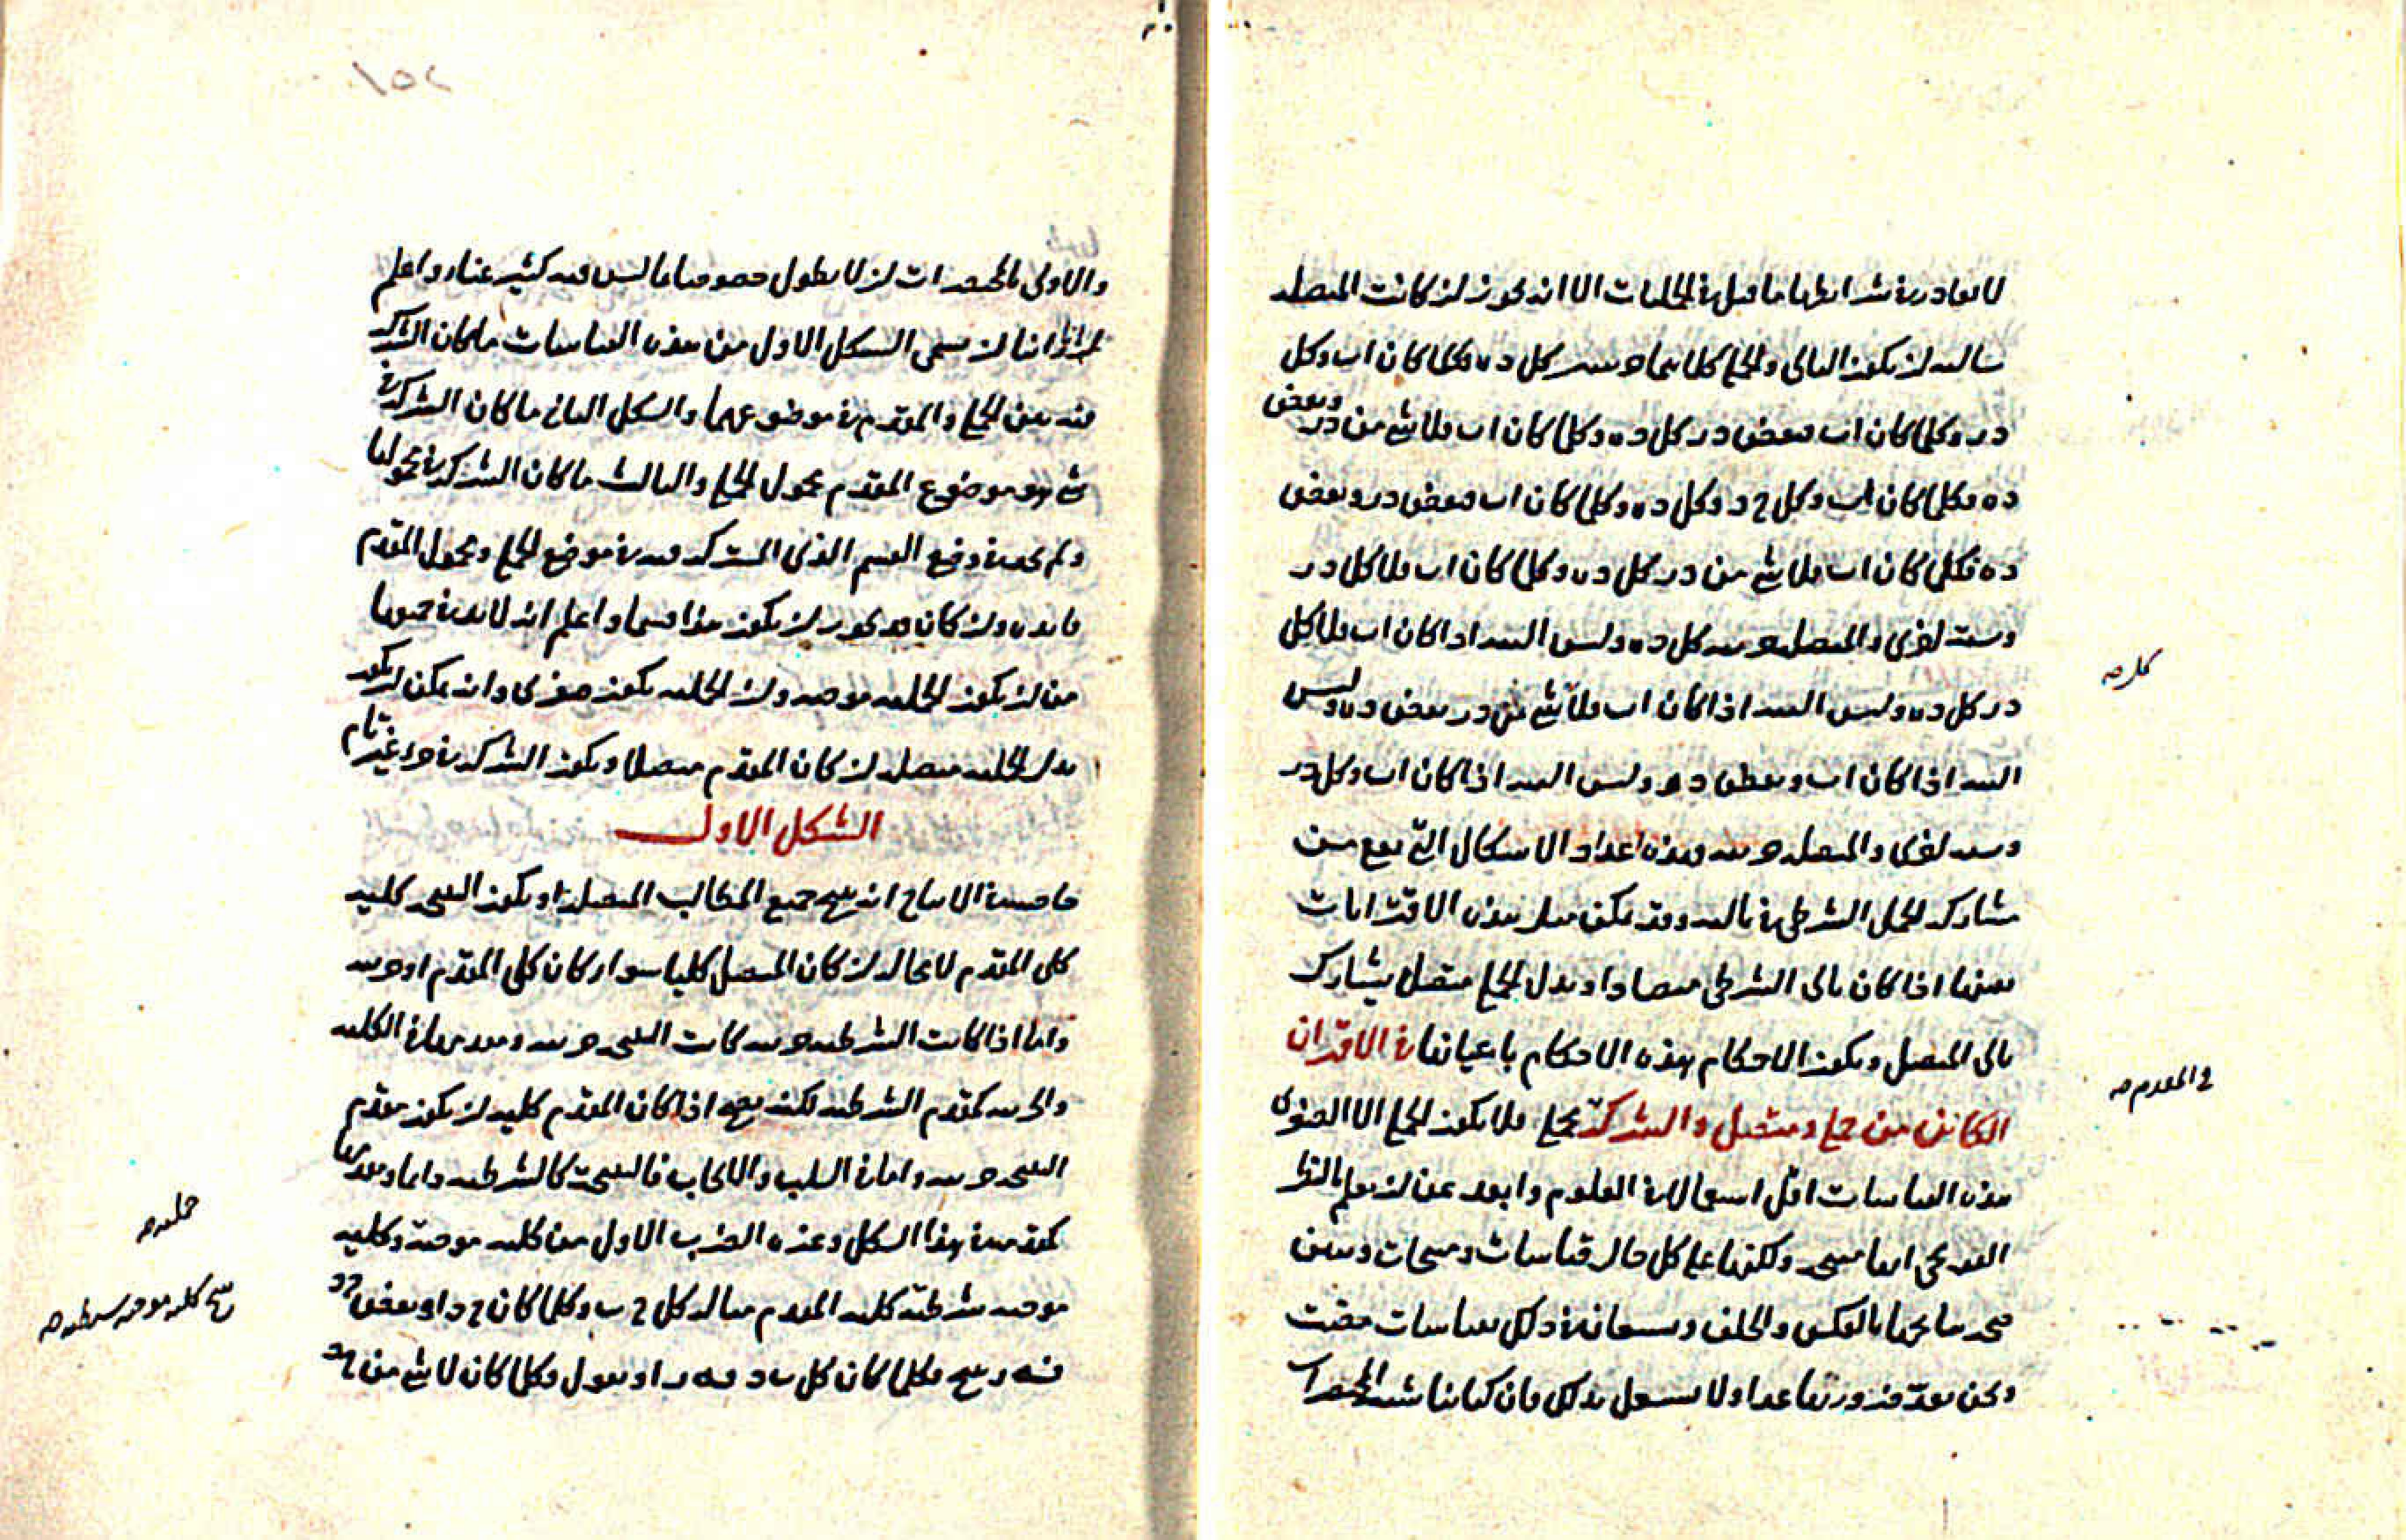 لا يغادر في شرائطها ما قيل في الحمليات الا انه يجوز ان كانت المتصلة
سالبة ان يكون التالى والحملى كلاهما سر كل د ه فكلما كان اب وكل
د ر وكلما كان اب فبعض د ر كل د ه وكلما كان اب فلا شئ من د ر وبعض
د ه فكلما كان اب وكل ح د وكل د ه وكلما كان اب فبعض د ر وبعض
د ه فكلما كان اب فلا شئ من د ر كل د ه وكلما كان اب فلا كل د ر
وستة اخرى والمتصلة جزئية كل د ه وليس البتة اذا كان اب فلا كل
د ر كل د ه وليس البتة اذا كان اب فلا شئ من د ر بعض د ه وليس
البتة اذا كان اب وبعض د ه وليس البتة اذا كان اب وكل د ر
وستة اخرى والمتصلة جزئية وهذه اعداد الاشكال التى تقع من
مشاركة الحملى الشرطى في تاليه وقد يمكن مثل هذه الاقترانات
بعينها اذا كان تالى الشرطى متصلا وبدل الحملى متصل يشارك
تالى المتصل ويكون الاحكام هذه الاحكام باعيانها في الاقتران
الكائن من حملى ومتصل والشركة بحملى فلا يكون الحملى الا الصغرى
هذه القياسات اقل استعمالا في العلوم وابعد عن ان يعلم بالنظر
القريحى انها منتجة ولكنها على كل حال قياسات ومنتجات وتبين
صحة نتائجها بالعكس والخلف ويستعان في ذلك بقياسات مضت
ونحن نعد ضروربها عدا ولا نشتغل بذلك فان كتابنا شبيه
كل صح
في المقدم صح
والاولى بالمختصرات ان لا يطول خصوصا فيما ليس فيه كثير غناء واعلم
انا ان نسمى الشكل الاول من هذه القياسات ما كان الشركة
فيه بين الحملى والمقدم في موضوعهما والشكل الثانى ما كان الشركة في
شئ هو موضوع المقدم محمول الحملى والثالث ما كان الشركة في محمولها
ولم نجد في وضع القسم الذى المشترك فيه في موضع الحملى ومحمول المقدم
فائدة وان كان قد يجوز ان يكون هذا قسما واعلم انه لا بد في جميعها
من ان يكون الحملية موجبة وان الحملية يكون صغرى وانه يمكن ان يكون
بدل الحملية متصلة ان كان المقدم متصلا ويكون الشركة في جزء غير تام
الشكل الاول
خاصيته في الانتاج انه ينتج جميع المطالب المتصلة او يكون النتيجة كلية
كلى المقدم لا محالة ان كان المتصل كليا سواء كان كلى المقدم او جزئيه
واما اذا كانت الشرطية جزئية كانت النتيجة جزئية ومقدمها في الكلية
والجزئية كمقدم الشرطية لكنه يجوز اذا كان المقدم كلية ان يكون مقدم
النتيجة جزئية واما في السلب والايجاب فالنتيجة كالشرطية دائما ومقدمها
كمقدمه في هذا الشكل وغيره الضرب الاول من كلية موجبة وكلية
موجبة شرطية كلية المقدم مثاله كل ح ب وكلما كان ح د او بعض ح د
فه ر ينتج فكلما كان كل ب د فه ر او نقول وكلما كان لا شئ من ح د
حملية صح
ينتج كلية موجبة شرطية صح
١٥٢